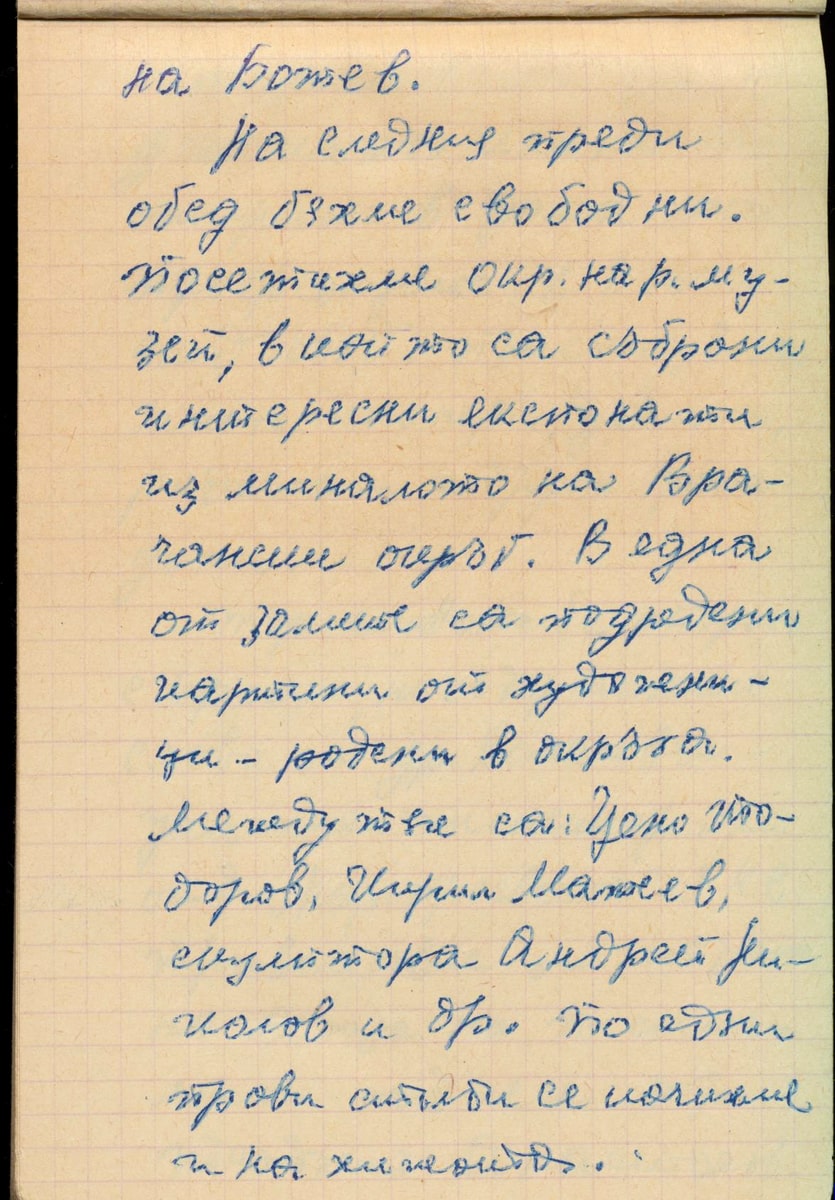 на Ботев.
На следния преди
обед бяхме свободни.
Посетихме окр. нар. му-
зей, в който са събрани
интересни експонати
из миналото на Вра-
чански окръг. В една
от залите са подредени
картини от художни-
ци - родени в окръга.
Между тях са: Цено То-
доров, Кирил Матеев,
скулптора Андрей Ни-
колов и др. По едни
стълби се качихме
и на